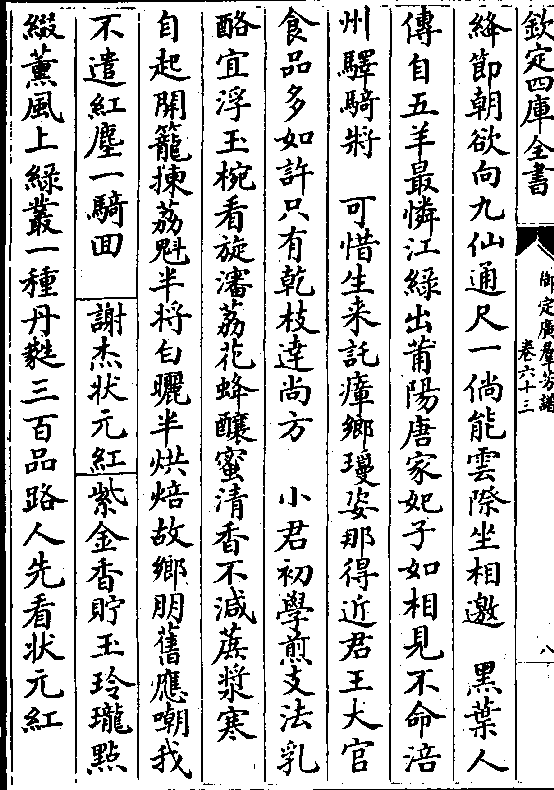 欽定四庫全書
御定廣羣芳譜
卷六十三
八
絳節朝欲向九仙通尺一倘能雲際坐相邀　黑葉人
傳自五羊最憐江綠出莆陽唐家妃子如相見不命涪
州驛騎將　可惜生来託瘴鄉瓊姿那得近君王大官
食品多如許只有乾枝達尚方　小君初學煎支法乳
酪宜浮玉椀看旋瀋荔花蜂釀蜜清香不減蔗漿寒
自起開籠揀荔魁半将白曬半烘焙故鄉朋舊應嘲我
不遣紅塵一騎回　謝杰狀元紅紫金香貯玉玲瓏點
綴薰風上綠叢一種丹麰三百品路人先看狀元紅